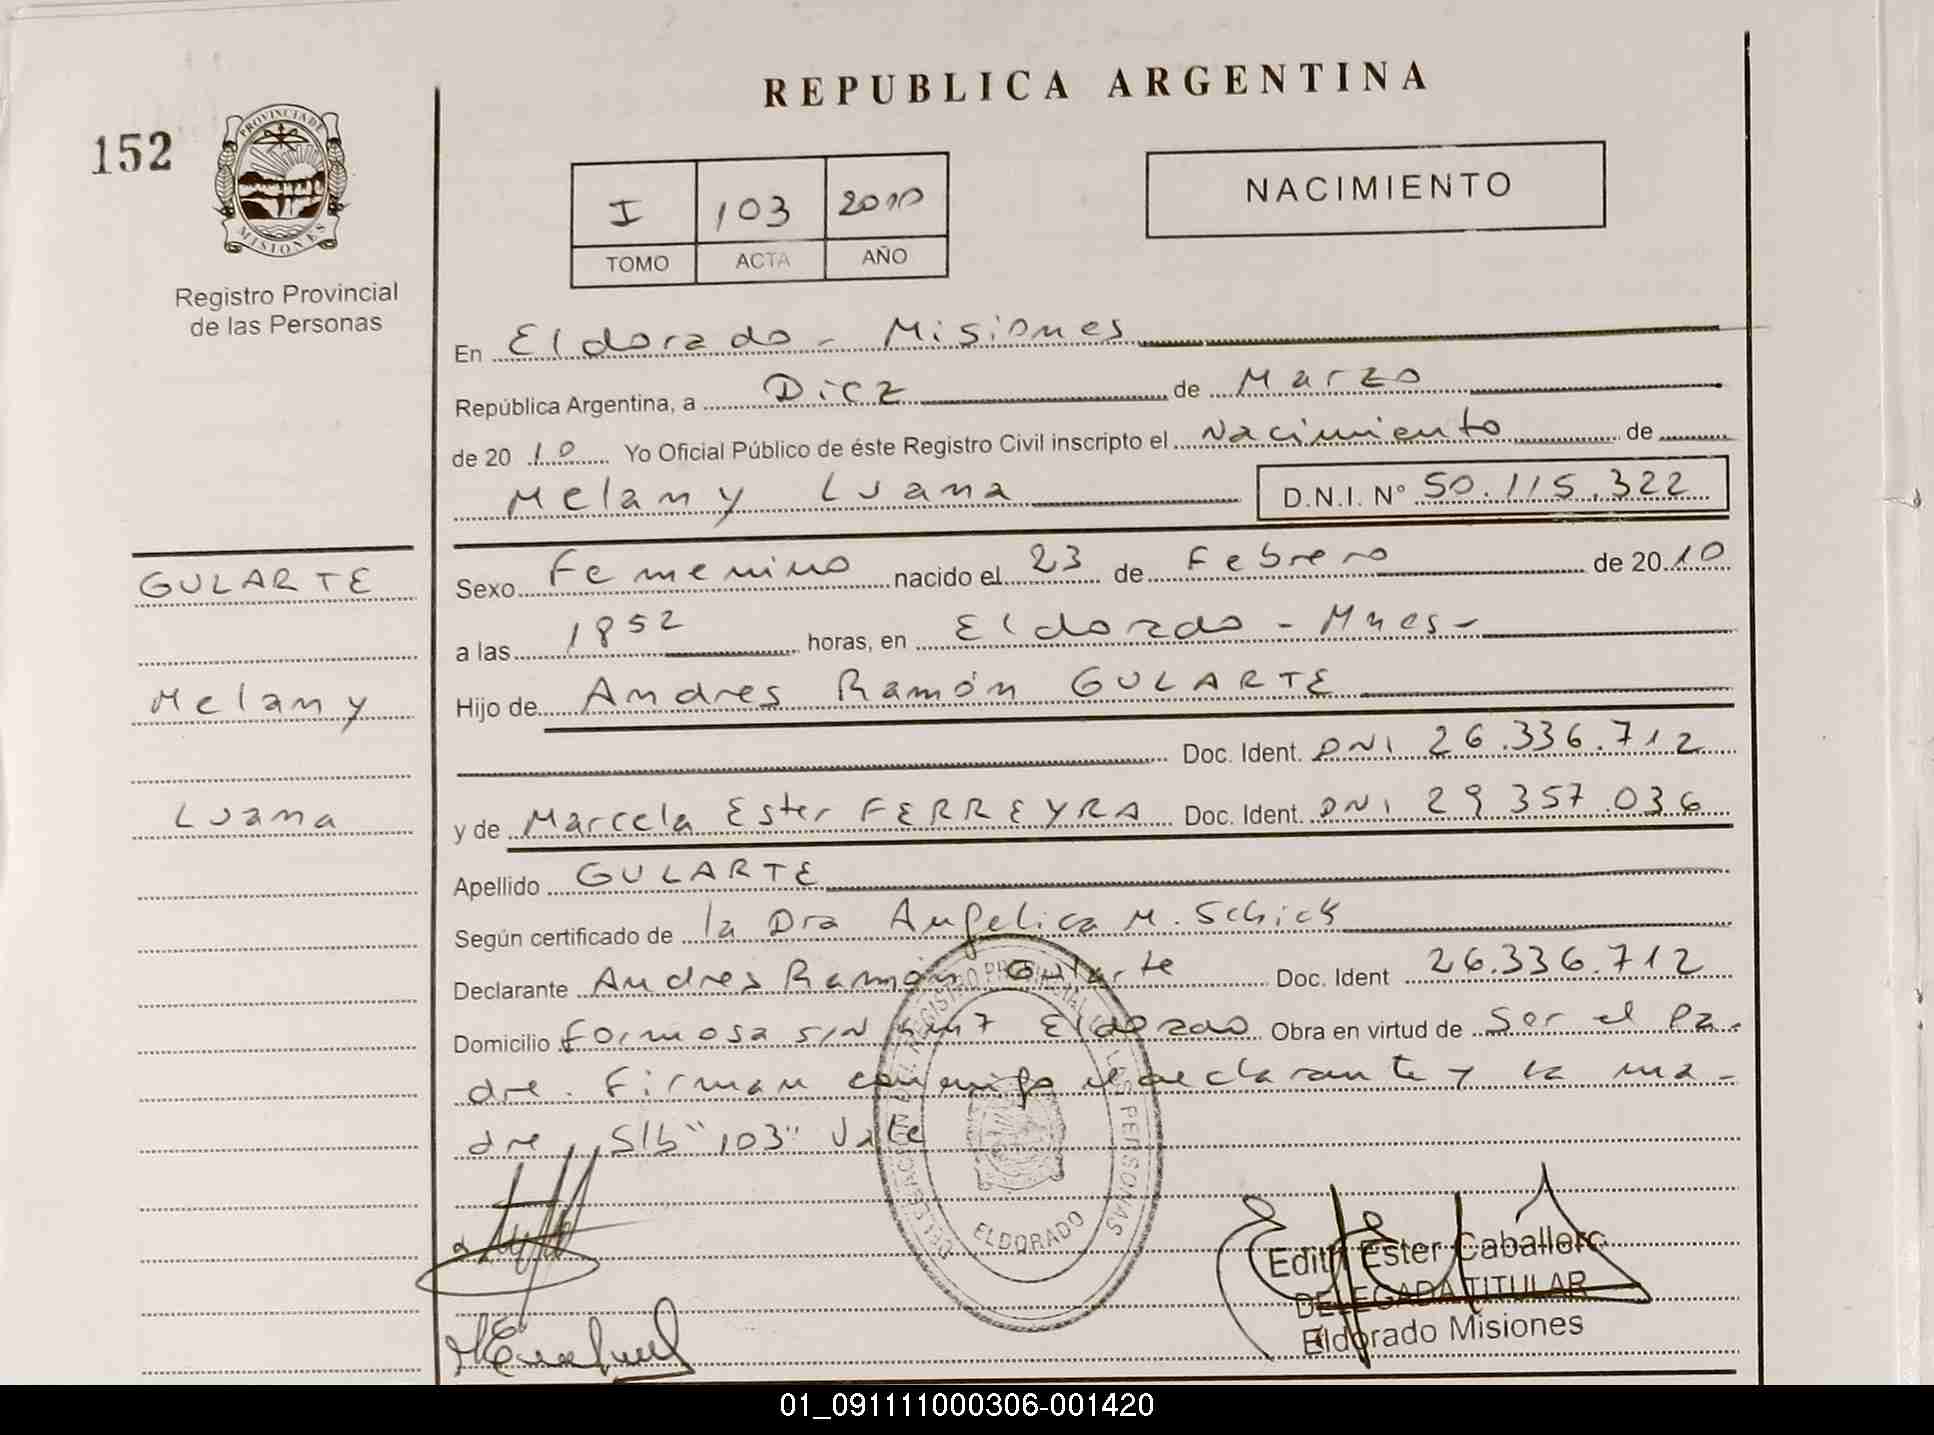 REPUBLICA ARGENTINA
152
PROVINCIA DE
MISIONES
Registro Provincial
de las Personas
I 103 2010
TOMO ACTA AÑO
NACIMIENTO
En Eldorado - Misiones
República Argentina, a Diez de Marzo
de 2010 Yo Oficial Público de éste Registro Civil inscripto el Nacimiento de
Melany Luana D.N.I. N° 50.115.322
GULARTE
Melany
Luana
Sexo Femenino nacido el 23 de Febrero de 2010
a las 1852 horas, en Eldorado - Mnes -
Hijo de Andres Ramón GULARTE
Doc. Ident. DNI 26.336.712
y de Marcela Ester FERREYRA Doc. Ident. DNI 29.357.036
Apellido GULARTE
Según certificado de la Dra Angelica M. Schick
Declarante Andres Ramón Gularte Doc. Ident 26.336.712
Domicilio Formosa S/N km 7 Eldorado Obra en virtud de Ser el Pa-
dre. Firman conmigo el declarante y la ma-
dre. S/b "103" Vale
DELEGACION DEL REGISTRO PROVINCIAL DE LAS PERSONAS
ELDORADO
Edith Ester Caballero
DELEGADA TITULAR
Eldorado Misiones
01_091111000306-001420